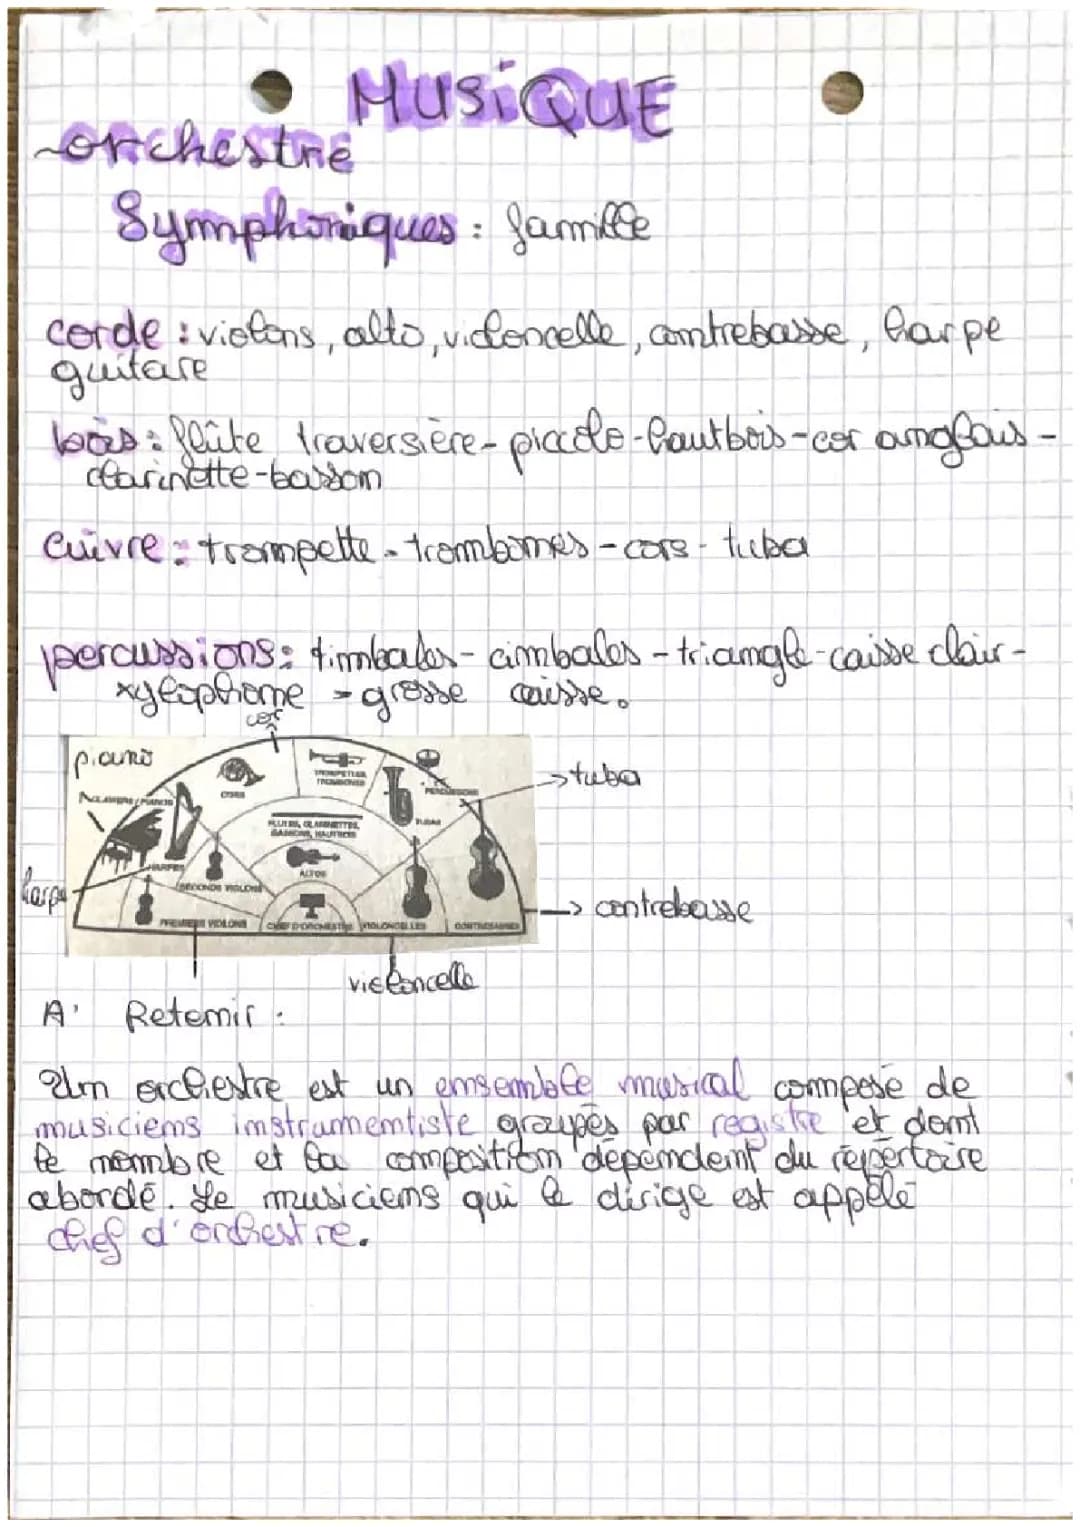 MUSIQUE
orchestre
Symphoniques : famille
corde : violons, alto, violoncelle, contrebasse, harpe
guitare
bois : flûte traversière - piccolo - hautbois - cor anglais -
clarinette - basson
cuivre : trompette - trombones - cors - tuba
percussions : timbales - cimbales - triangle - caisse clair -
xylophone - grosse caisse.
cor
piano
CORS
TROMPETTES
TROMBONES
PERCUSSIONS
tuba
CLAVIERS / PIANOS
FLUTES, CLARINETTES,
BASSONS, HAUTBOIS
TUBAS
HARPES
ALTOS
harpe
SECONDS VIOLONS
PREMIERS VIOLONS
CHEF D'ORCHESTRE
VIOLONCELLES
CONTREBASSES
contrebasse
violoncelle
A' Retenir :
Un orchestre est un ensemble musical composé de
musiciens instrumentiste groupés par registre et dont
le nombre et la composition dépendent du répertoire
abordé. Le musiciens qui le dirige est appelé
chef d'orchestre.